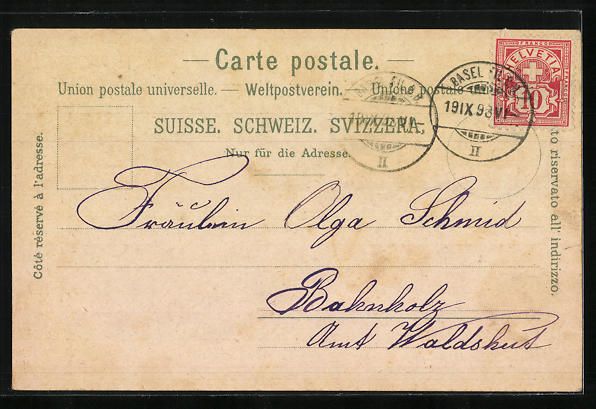 — Carte postale. —
Union postale universelle. — Weltpostverein. — Unione postale
SUISSE. SCHWEIZ. SVIZZERA.
Nur für die Adresse.
Côté réservé à l'adresse.
riservato all' indirizzo.
HELVETIA
FRANCO
10
BASEL
19 IX 98 VI
II
II
Fräulein Olga Schmid
Bahnholz
Amt Waldshut